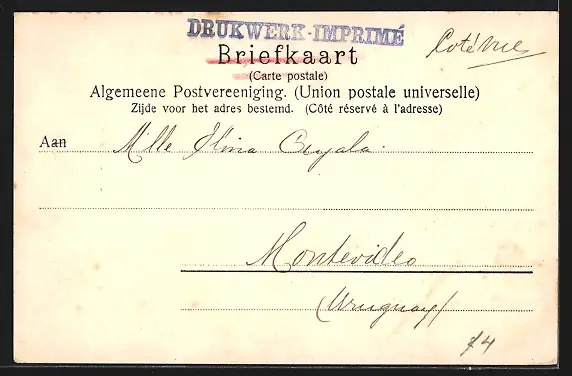 DRUKWERK-IMPRIMÉ
Coté vue
Briefkaart
(Carte postale)
Algemeene Postvereeniging. (Union postale universelle)
Zijde voor het adres bestemd. (Côté réservé à l'adresse)
Aan Mlle Elina
Montevideo
(Uruguay)